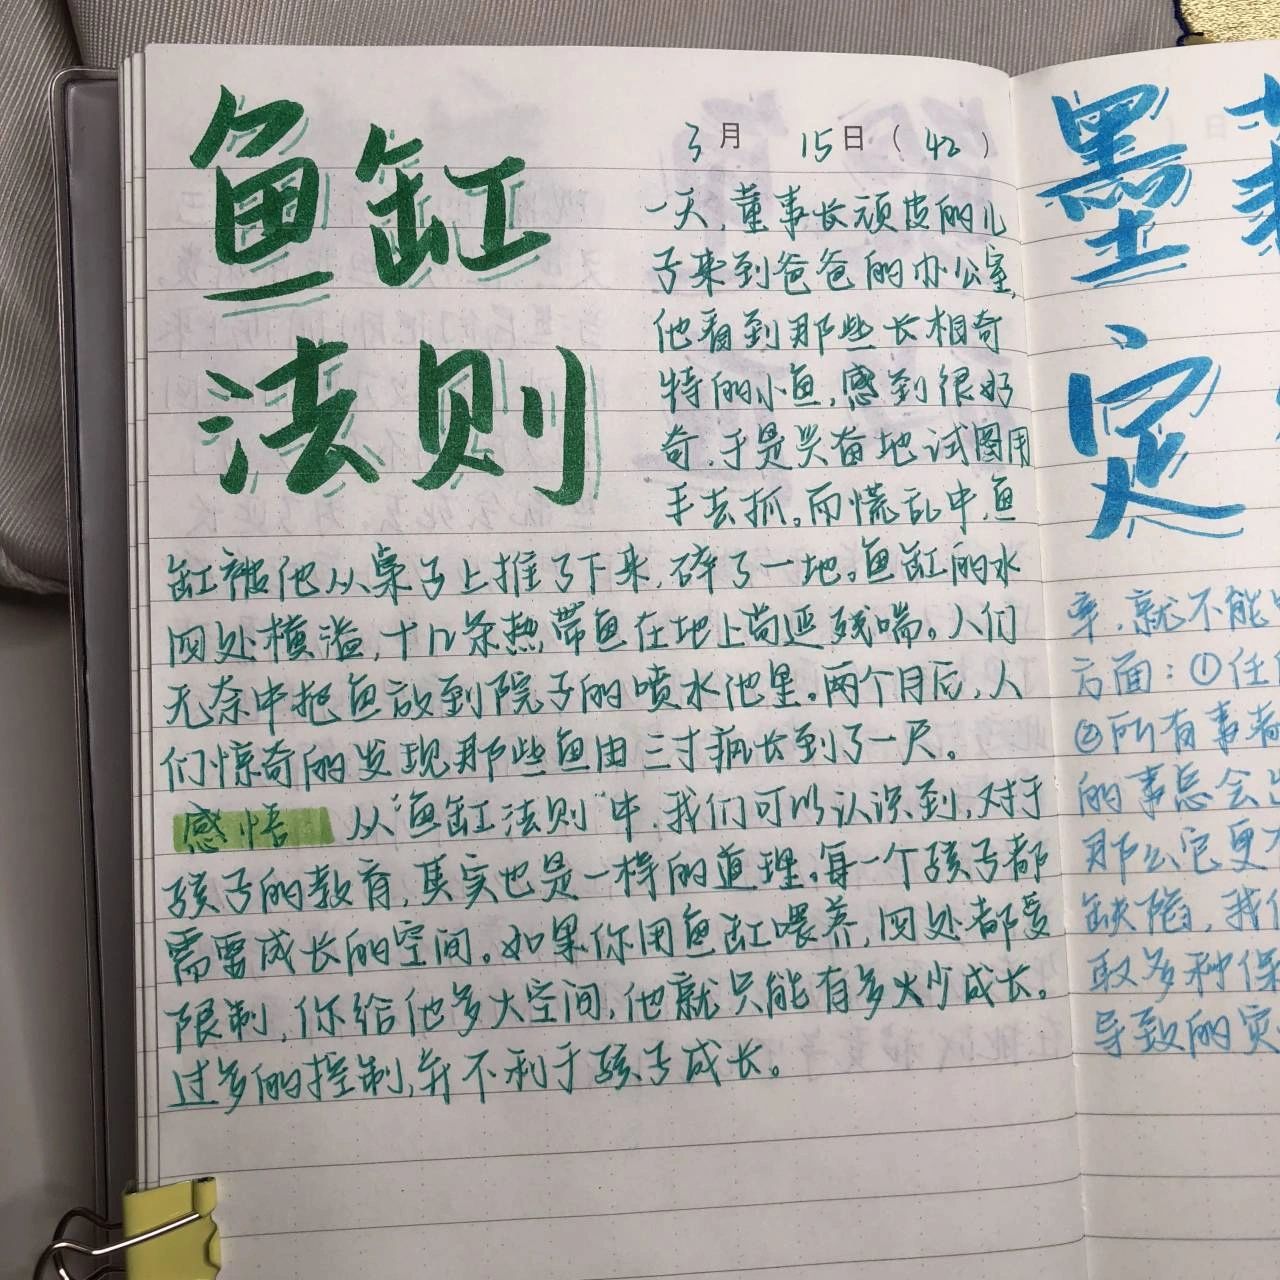 鱼缸
法则
3月 15日(42)
一天,董事长顽皮的儿
子来到爸爸的办公室,
他看到那些长相奇
特的小鱼,感到很好
奇,于是兴奋地试图用
手去抓。而慌乱中,鱼
缸被他从桌子上推了下来,碎了一地。鱼缸的水
四处横溢,十几条热带鱼在地上苟延残喘。人们
无奈中把鱼放到院子的喷水池里。两个月后,人
们惊奇的发现那些鱼由三寸疯长到了一尺。
感悟 从“鱼缸法则”中,我们可以认识到,对于
孩子的教育,其实也是一样的道理。每一个孩子都
需要成长的空间。如果你用鱼缸喂养,四处都受
限制,你给他多大空间,他就只能有多大少成长。
过多的控制,并不利于孩子成长。
墨菲
定
率,就不能
方面:①任
②所有事都
的事总会出
那么它更
缺陷,我们
取多种保
导致的灾